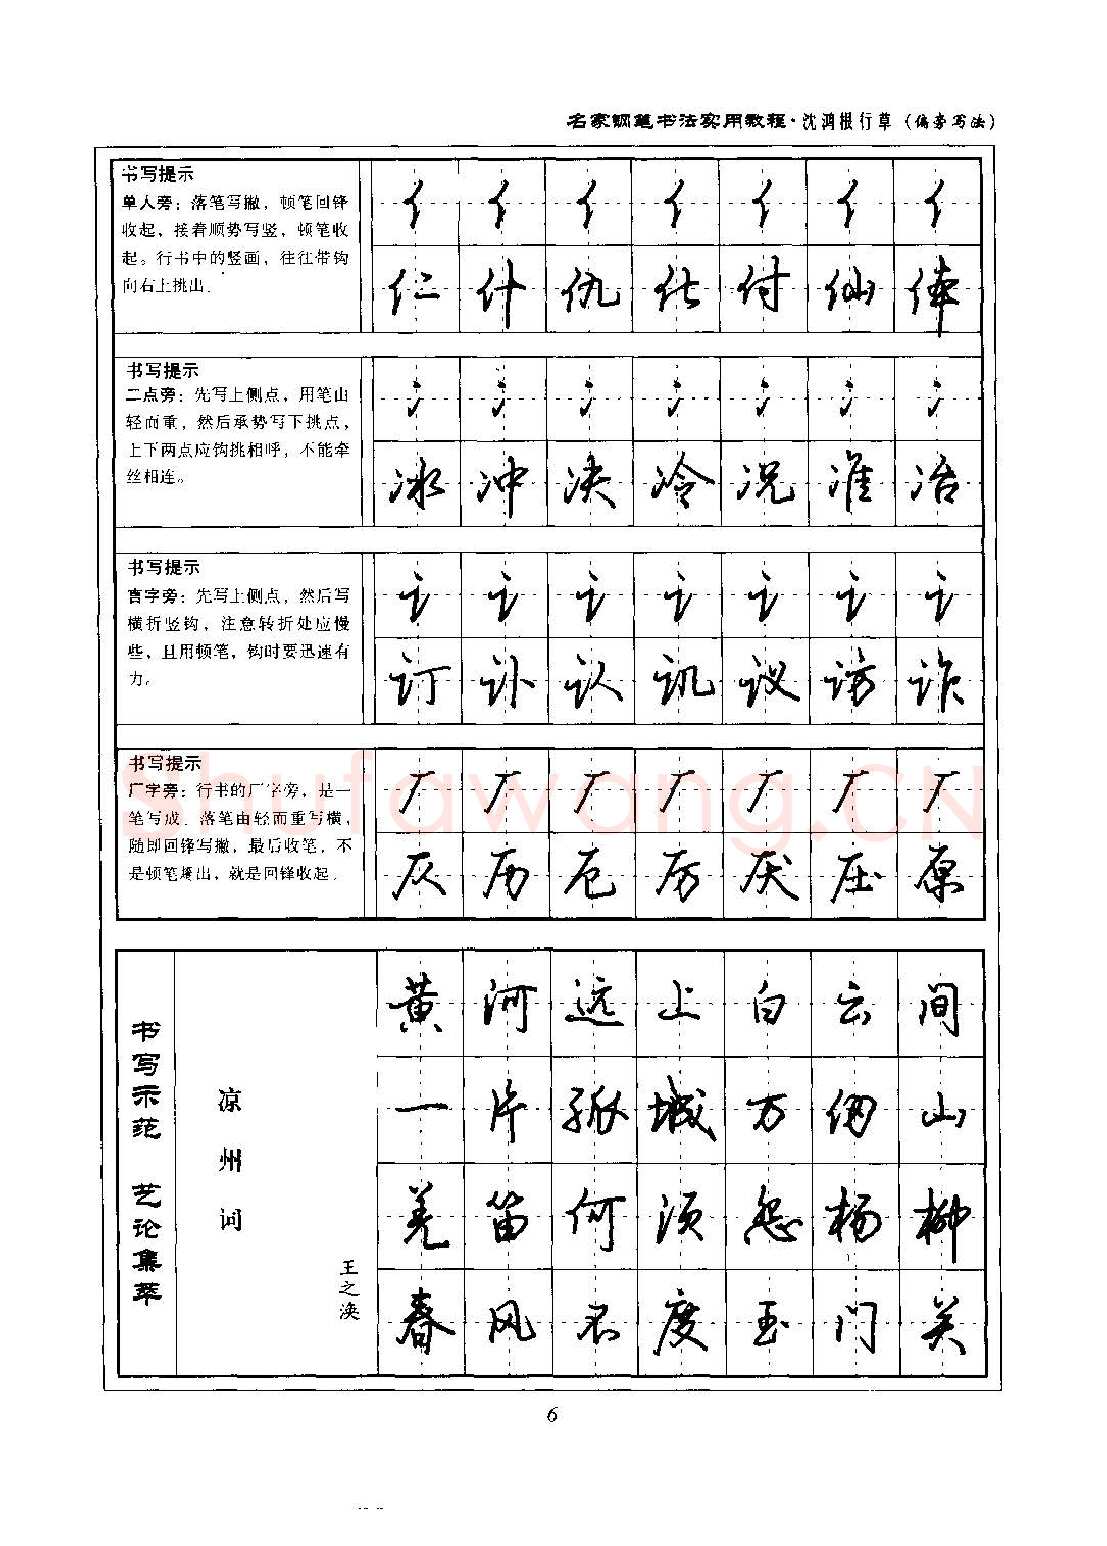 名家钢笔书法实用教程·沈鸿根行草（偏旁写法）
书写提示
单人旁：落笔写撇，顿笔回锋
收起，接着顺势写竖，顿笔收
起。行书中的竖画，往往带钩
向右上挑出.
亻 亻 亻 亻 亻 亻 亻
仁 什 仇 仕 付 仙 俸
书写提示
二点旁：先写上侧点，用笔由
轻而重，然后承势写下挑点，
上下两点应钩挑相呼，不能牵
丝相连。
冫 冫 冫 冫 冫 冫 冫
冰 冲 决 冷 况 准 冶
书写提示
言字旁：先写上侧点，然后写
横折竖钩，注意转折处应慢
些，且用顿笔，钩时要迅速有
力。
讠 讠 讠 讠 讠 讠 讠
订 讣 认 讥 议 访 诈
书写提示
厂字旁：行书的厂字旁，是一
笔写成.落笔由轻而重写横，
随即回锋写撇，最后收笔，不
是顿笔撇出，就是回锋收起.
厂 厂 厂 厂 厂 厂 厂
仄 历 厄 厉 厌 压 原
Shufawang.CN
书写示范 艺论集萃
凉州词
王之涣
黄河远上白云间
一片孤城万仞山
羌笛何须怨杨柳
春风不度玉门关
6